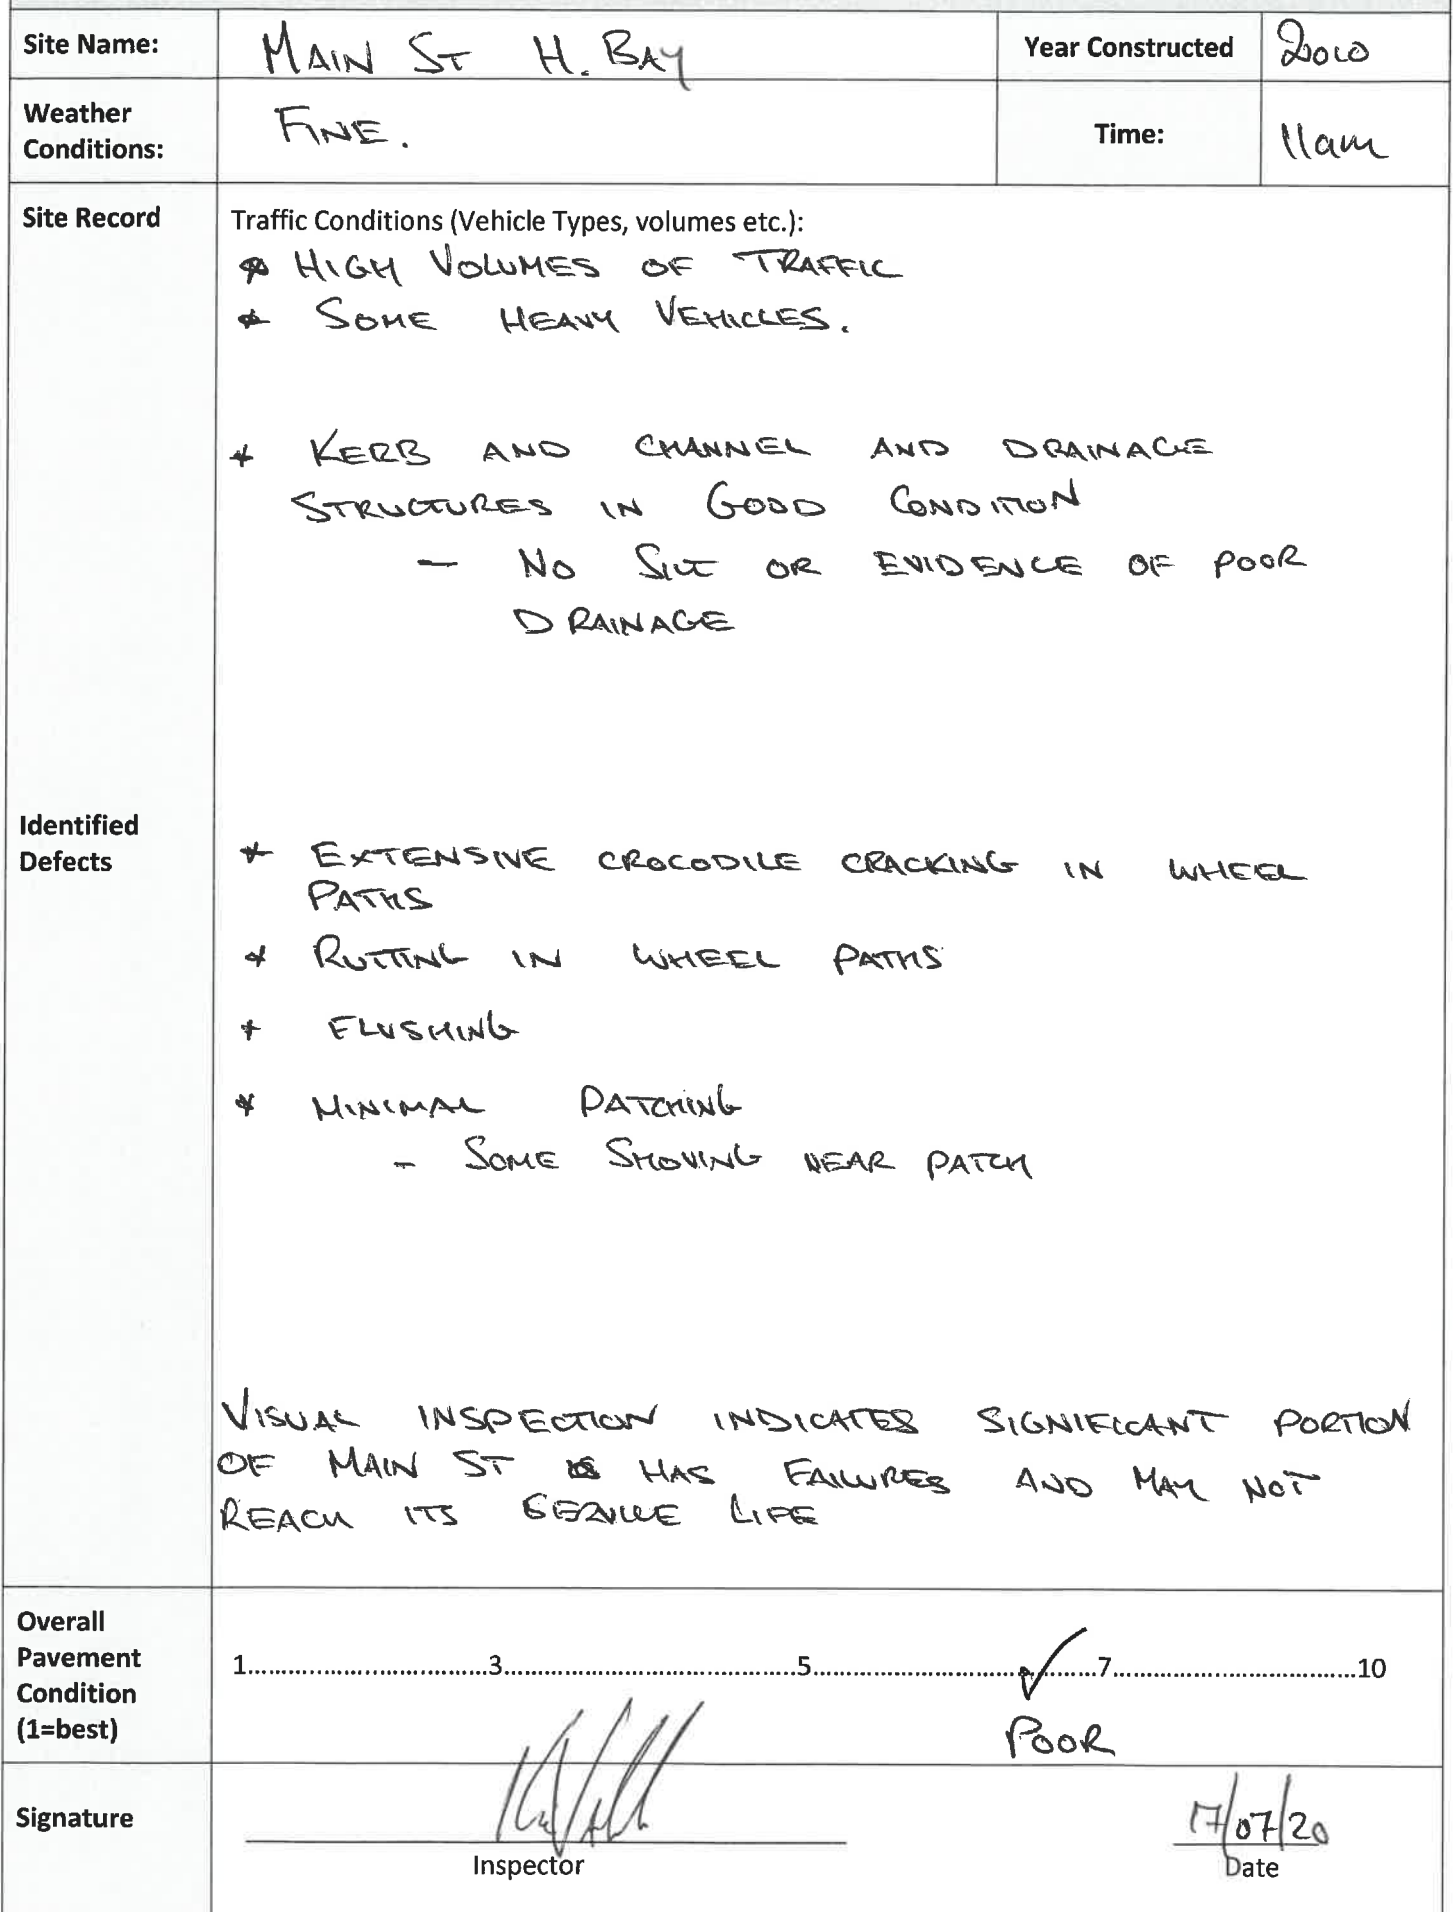 Site Name: MAIN ST H. BAY Year Constructed 2010
Weather Conditions: FINE. Time: 11am
Site Record Traffic Conditions (Vehicle Types, volumes etc.):
* HIGH VOLUMES OF TRAFFIC
* SOME HEAVY VEHICLES.
* KERB AND CHANNEL AND DRAINAGE
STRUCTURES IN GOOD CONDITION
- NO SILT OR EVIDENCE OF POOR
DRAINAGE
Identified
Defects
* EXTENSIVE CROCODILE CRACKING IN WHEEL
PATHS
* RUTTING IN WHEEL PATHS
* FLUSHING
* MINIMAL PATCHING
- SOME SHOVING NEAR PATCH
VISUAL INSPECTION INDICATES SIGNIFICANT PORTION
OF MAIN ST HAS FAILURES AND MAY NOT
REACH ITS SERVICE LIFE
Overall
Pavement
Condition
(1=best)
1..................................3..........................................5........................................✓..........7..................................10
POOR
Signature
17/07/20
Inspector Date